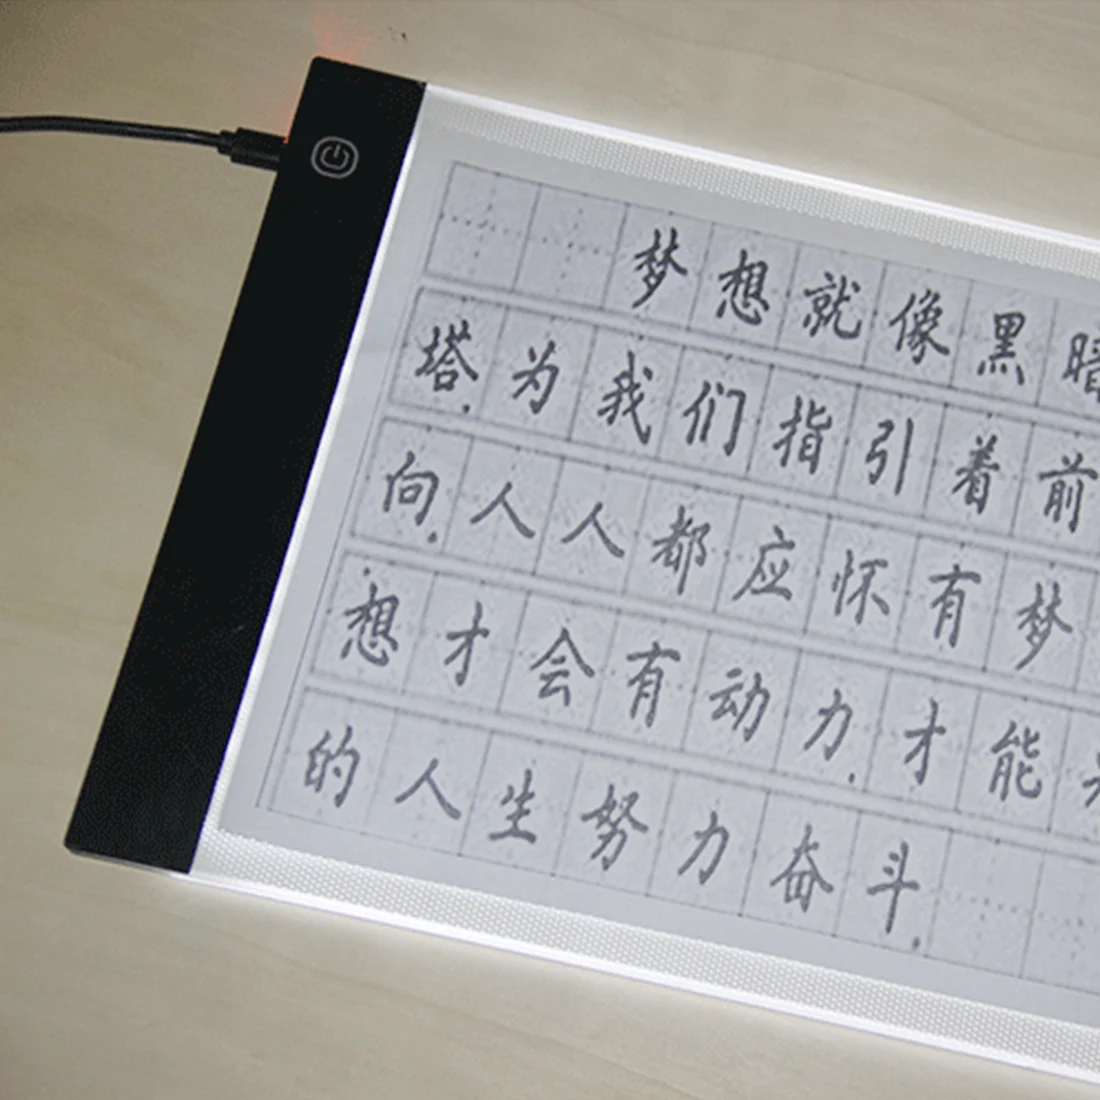 梦想就像黑暗
塔为我们指引着前
向.人人都应怀有梦
想才会有动力.才能
的人生努力奋斗.